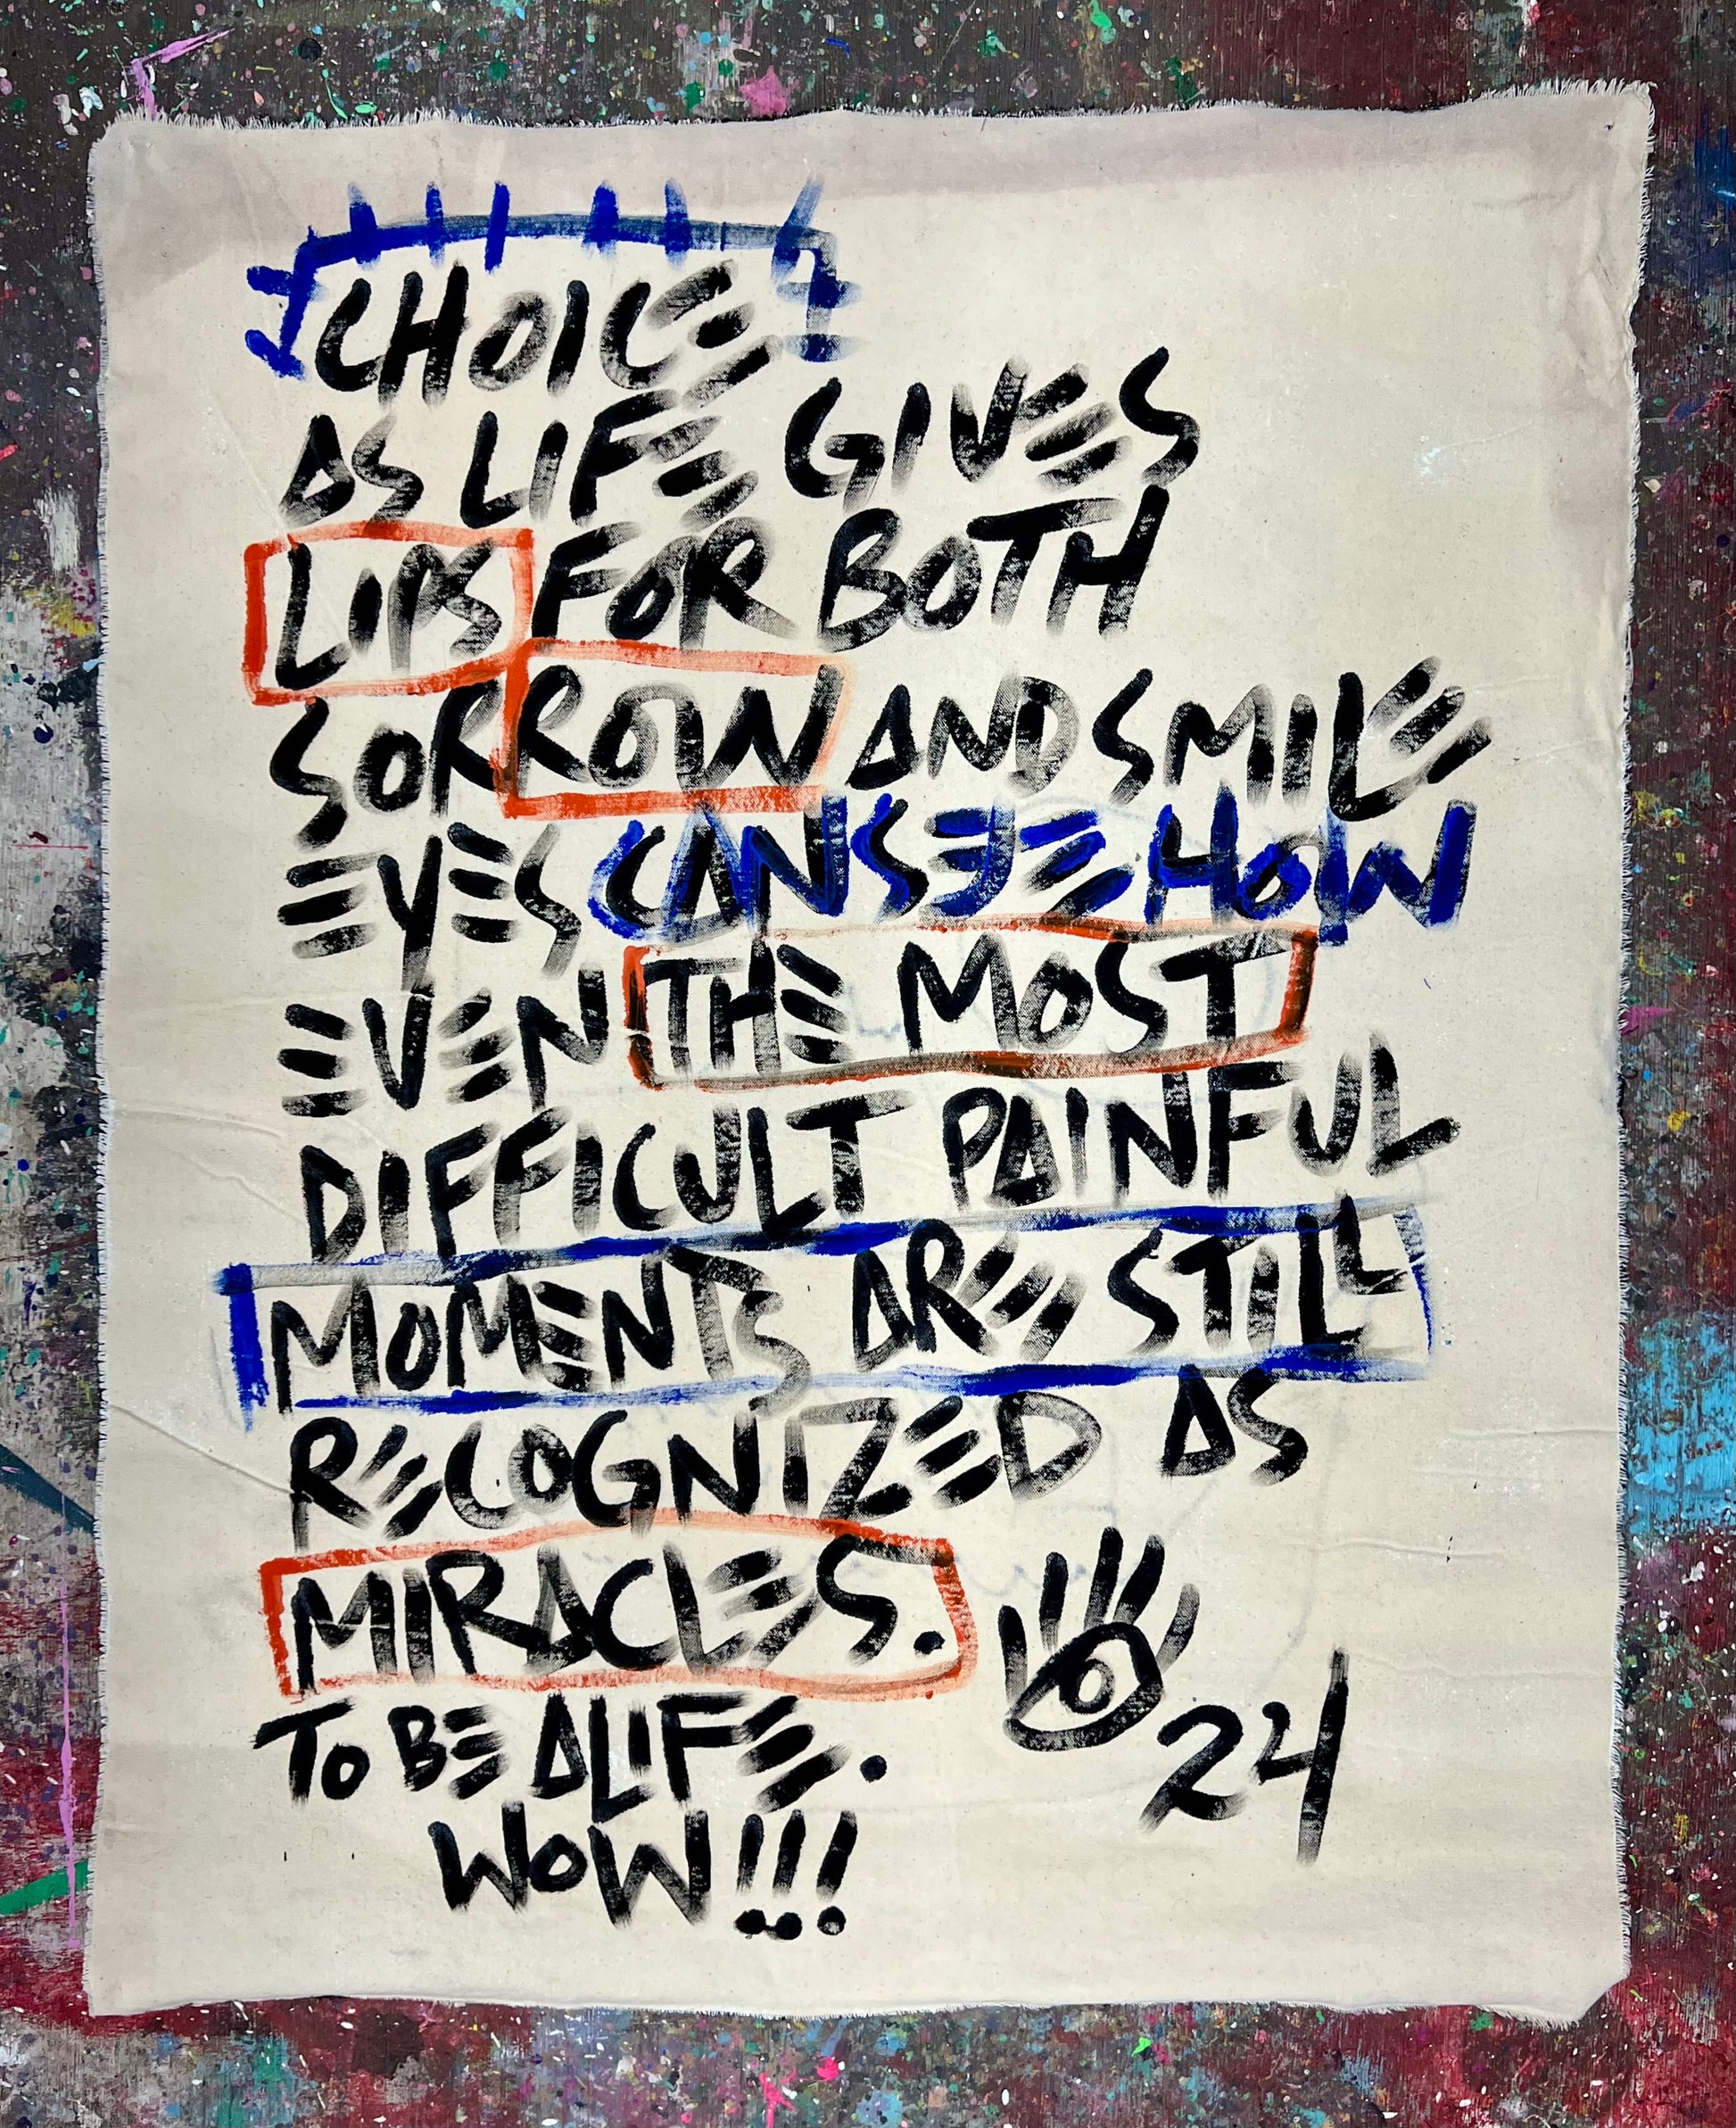 CHOICE
AS LIFE GIVES
LIPS FOR BOTH
SORROW AND SMILE
EYES CAN SEE HOW
EVEN THE MOST
DIFFICULT PAINFUL
MOMENTS ARE STILL
RECOGNIZED AS
MIRACLES.
TO BE ALIFE.
WOW!!!
24